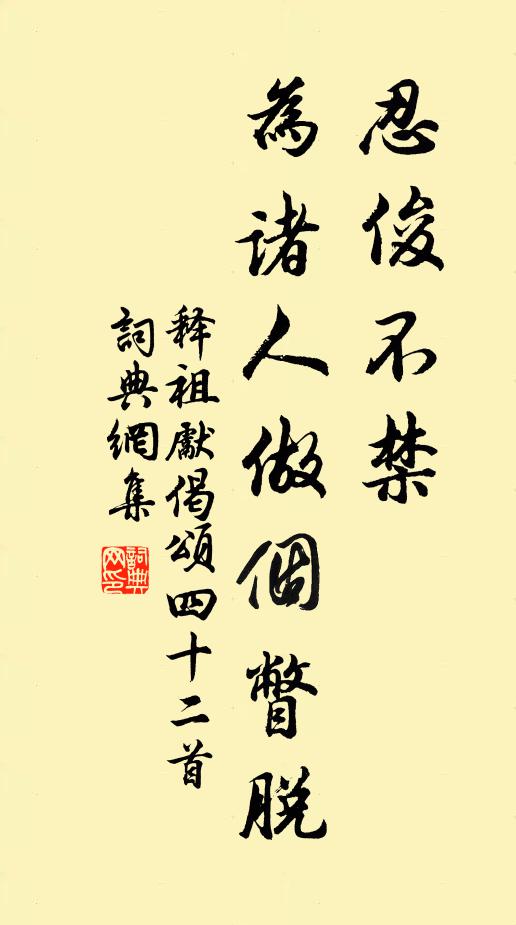 忍俊不禁
為诸人做個瞥脱
释祖獻偈頌四十二首
詞典網集
詞典
网印